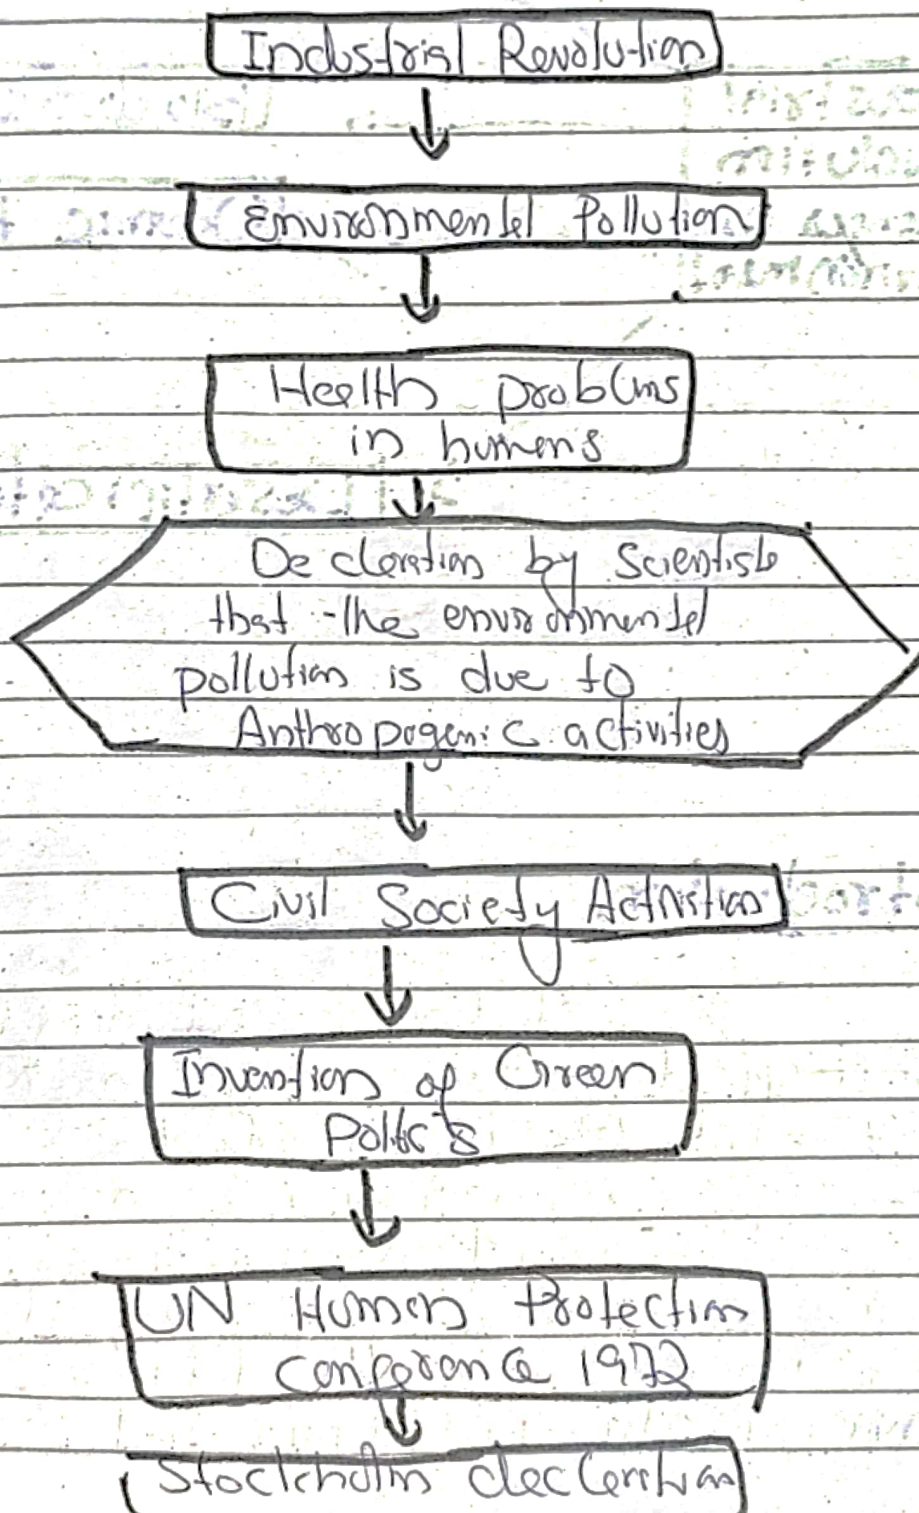 Industrial Revolution
Environmental Pollution
Health problms
in humans
Decleration by Scientists
that the environmental
pollution is due to
Anthropogenic activities
Civil Society
Invention of Green
Politics
UN Human Protection
Conference 1972
Stockholm decleration